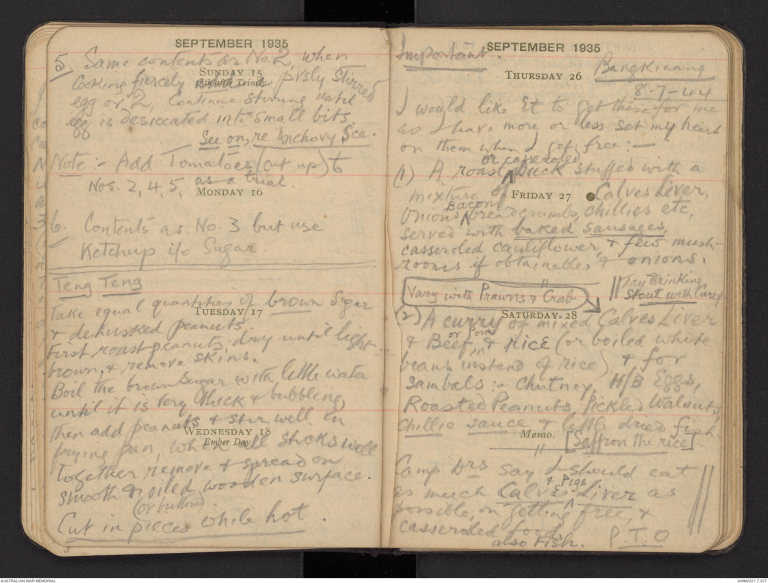 SEPTEMBER 1935
5. Same contents as No. 2, when
SUNDAY 15
cooking fiercely prsly stirred
egg or 2, continue stirring until
egg is desiccated into small bits.
See on, re Anchovy Sce.
Note :- Add Tomatoes (cut up) to
Nos. 2, 4, 5, as a trial.
MONDAY 16
6. Contents as No. 3 but use
Ketchup i/o Sugar
Teng Teng
Take equal quantities of brown sugar
TUESDAY 17
& dehusked peanuts.
First roast peanuts, dry until light
brown, & remove skins.
Boil the brown sugar with little water
until it is very thick & bubbling
then add peanuts & stir well in
WEDNESDAY 18
Ember Day
frying pan, when all sticks well
together remove & spread on
smooth & oiled wooden surface.
(or buttered)
Cut in pieces while hot.
SEPTEMBER 1935
Important.
THURSDAY 26
Bangkinang
8-7-44
I would like Et to get these for me
as I have more or less set my heart
on them when I get free :-
or casseroled
(1) A roast Duck stuffed with a
mixture of Calves Liver,
FRIDAY 27
Bacon
Onions breadcrumbs, chillies etc,
served with baked sausages,
casseroled cauliflower & few mush-
rooms if obtainable & onions.
Vary with Prawns & Crab
Try drinking
Stout with Curry
SATURDAY 28
(2) A curry of mixed Calves Liver
or
& Beef, & RICE (or boiled white
beans instead of rice) & for
sambals :- chutney, H/B Eggs,
Roasted Peanuts, Pickled Walnuts,
chillie sauce & little dried fish.
MEMO.
[Saffron the rice]
Camp Drs say I should eat
& Pigs
as much Calves Liver as
possible, on getting free, &
casseroled food
also Fish.
P.T.O
AUSTRALIAN WAR MEMORIAL